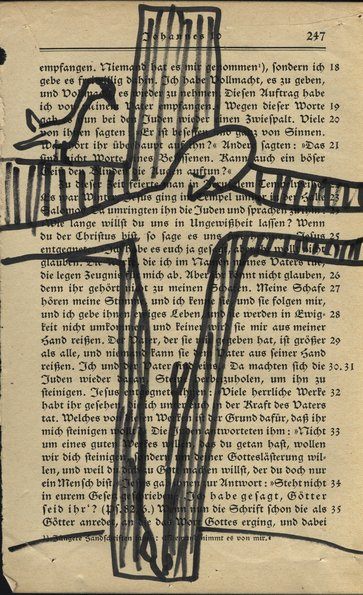 Johannes 10 247
empfangen. Niemand hat es mir genommen¹), sondern ich 18
gebe es freiwillig dahin. Ich habe Vollmacht, es zu geben,
und Vollmacht, es wieder zu nehmen. Diesen Auftrag habe
ich von meinem Vater empfangen.« Wegen dieser Worte 19
gab es nun bei den Juden wieder einen Zwiespalt. Viele 20
von ihnen sagten: »Er ist besessen und von Sinnen.
ihr ihn?« Andere sagten: »Das 21
sind nicht Worte eines Besessenen. Kann auch ein böser
Zu dieser Zeit
es war Winter. Jesus ging im Tempel in der Halle
Da umringten ihn die Juden und sprachen zu ihm:
»Wie lange willst du uns in Ungewißheit lassen? Wenn
du der Christus bist, so sage es
entgegnete ihnen: »Ich habe es euch ja gesagt,
glauben. Die die ich im Namen meines Vaters tue,
die legen Zeugnis von mir ab. Aber ihr könnt nicht glauben, 26
denn ihr gehört nicht zu meinen Schafen. Meine Schafe 27
hören meine Stimme, und ich kenne sie, und sie folgen mir,
und ich gebe ihnen ewiges Leben, und sie werden in Ewig- 28
keit nicht umkommen, und keiner wird sie mir aus meiner
Hand reißen. Der Vater, der sie mir gegeben hat, ist größer 29
als alle, und niemand kann sie dem Vater aus seiner Hand
reißen. Ich und der Vater sind eins.« Da machten sich die 30.31
Juden wieder daran, Steine herbeizuholen, um ihn zu
steinigen. Jesus entgegnete ihnen: »Viele herrliche Werke 32
habt ihr gesehen, die ich aus der Kraft des Vaters
tat. Welches von diesen Werken ist der Grund dafür, daß ihr
mich steinigen wollt?« Die Juden antworteten ihm: »Nicht 33
um eines guten Werkes willen, das du getan hast, wollen
wir dich steinigen, sondern wegen einer Gotteslästerung wil-
len, und weil du dich zu Gott machen willst, der du doch nur
ein Mensch bist.« Jesus gab ihnen zur Antwort: »Steht nicht 34
in eurem Gesetz geschrieben: ›Ich habe gesagt, Götter
seid ihr‹? (Ps. 82,6.) Wenn nun die Schrift schon die als 35
Götter anredet, an die das Wort Gottes erging, und dabei
¹) Jüngere Handschriften »Niemand nimmt es von mir.«